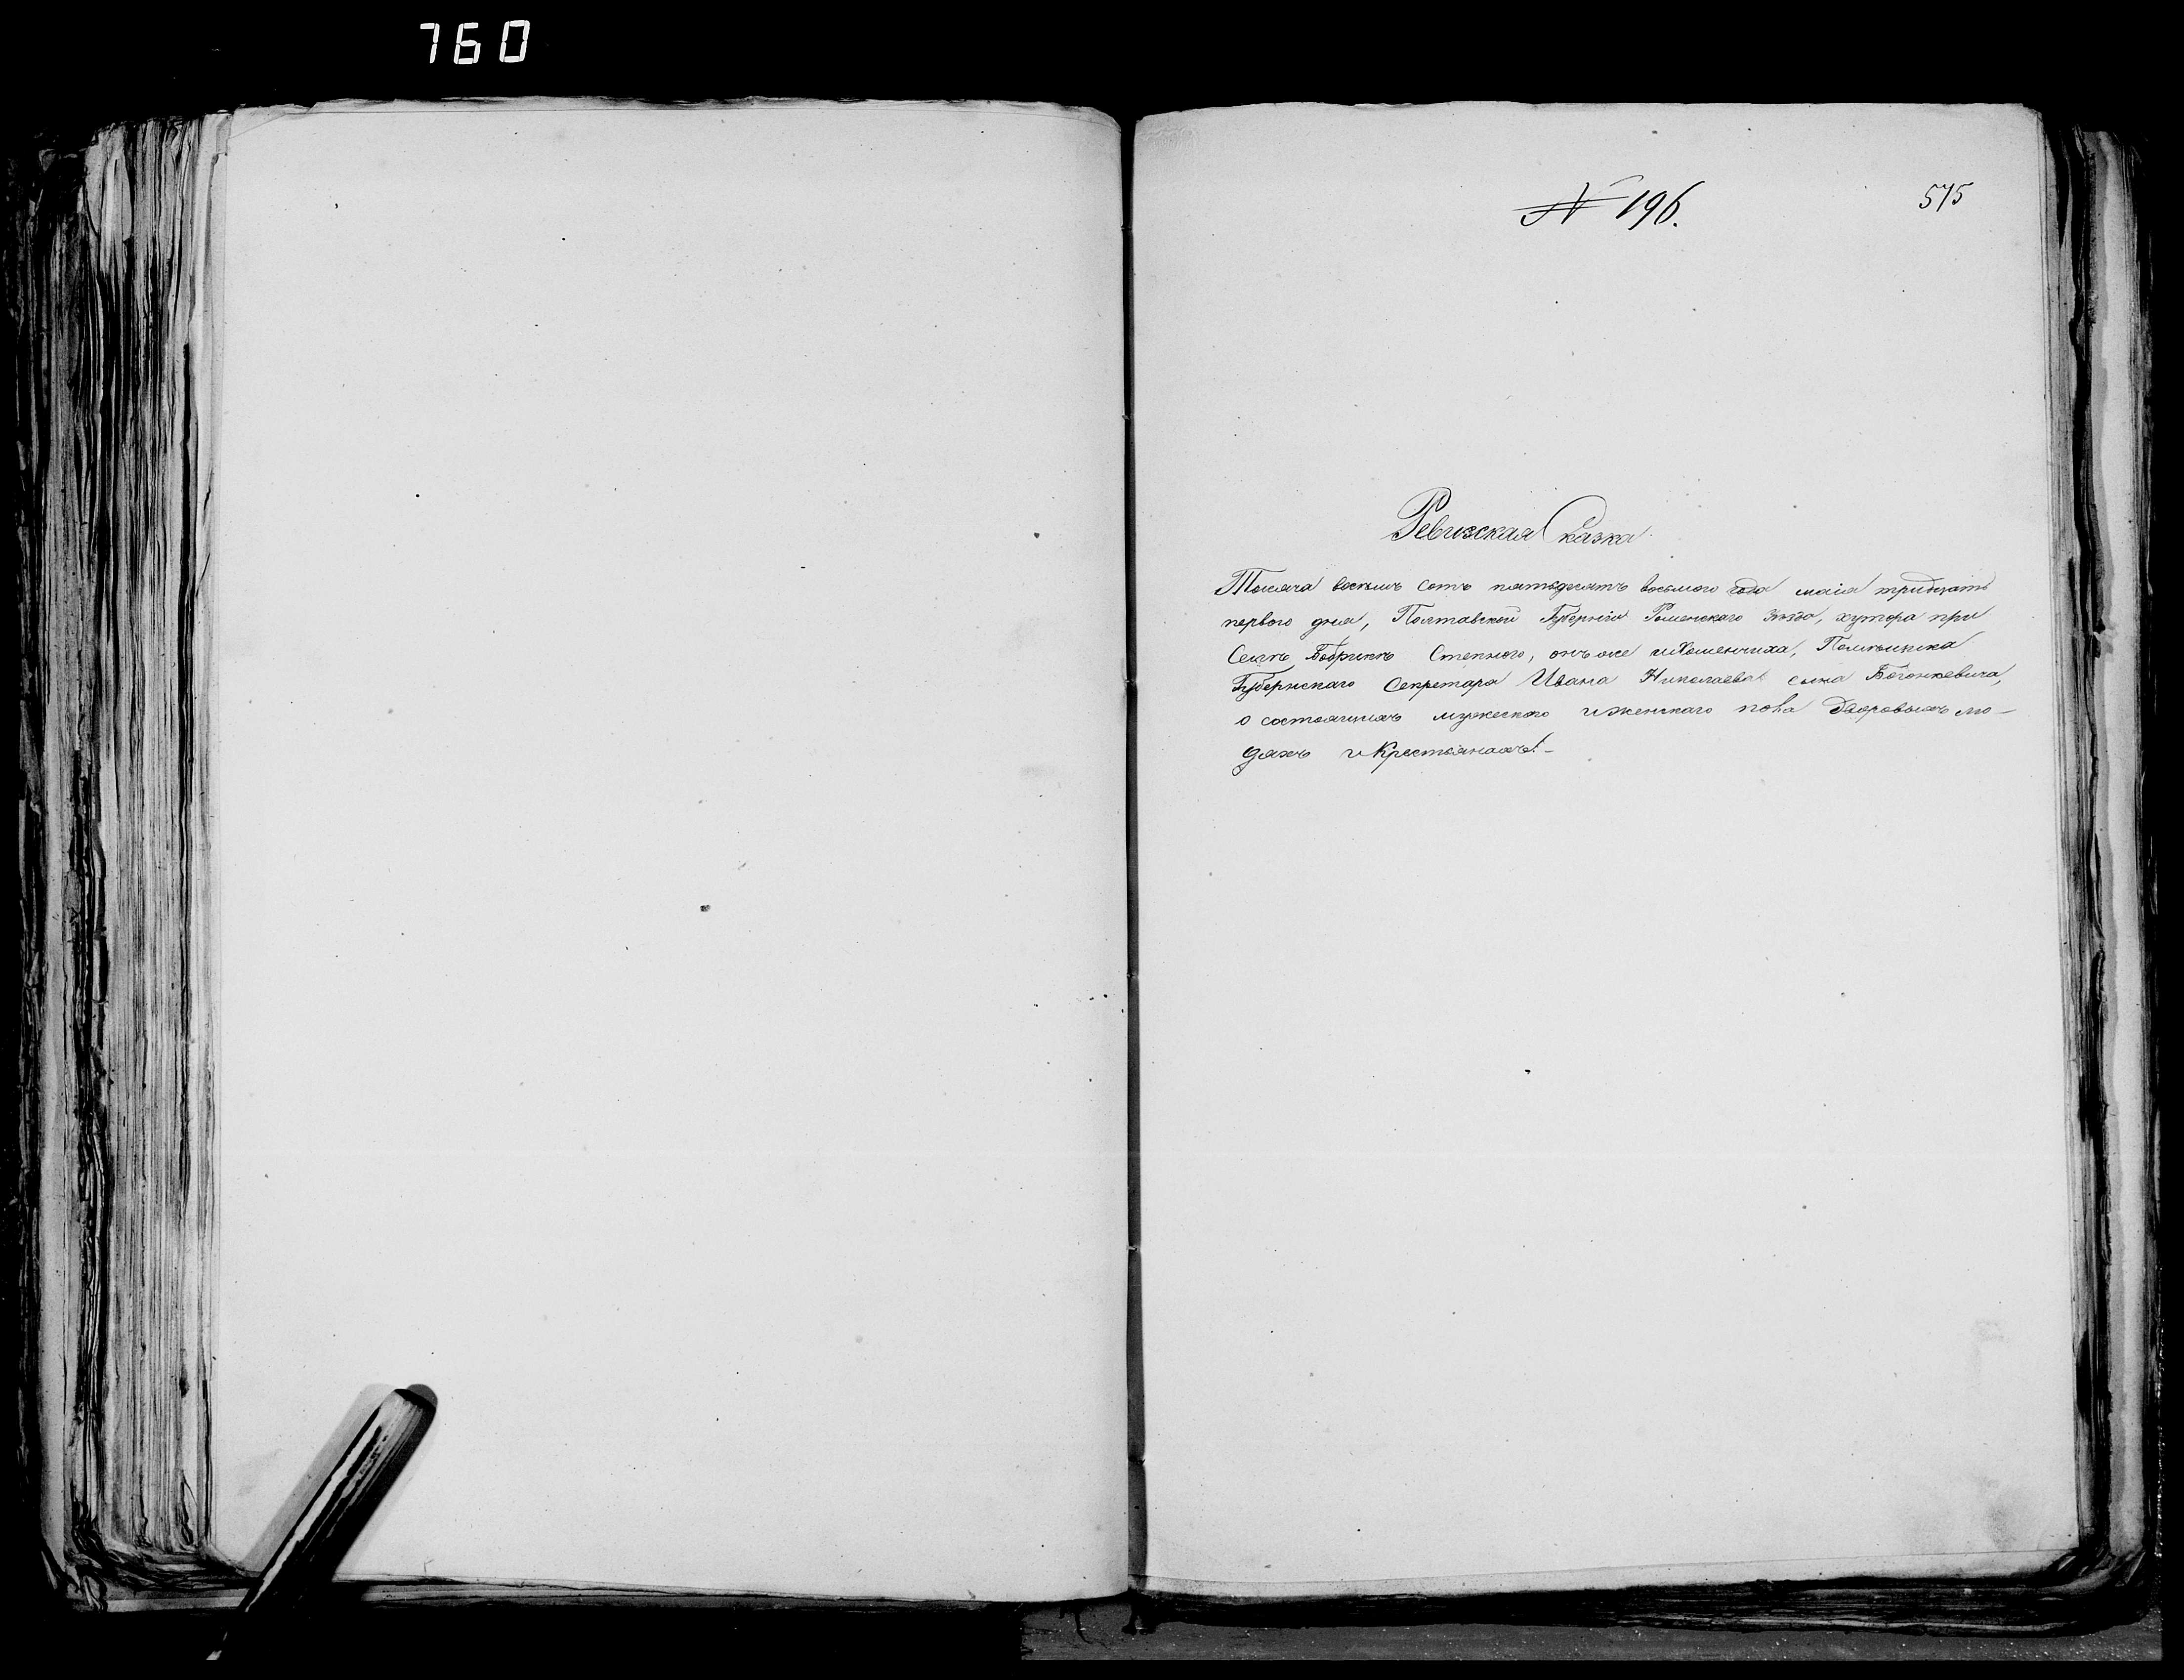 760
№ 196.
575
Ревизская Сказка
Тысяча восемь сотъ пятьдесятъ восьмого года маія тридцать
перваго дня, Полтавской Губерніи Роменскаго уѣзда, хутора при
Селѣ Бобрикѣ Степного, онъ же Помѣщика
Губернскаго Секретаря Ивана Николаева сына Богонкевича,
о состоящихъ мужеского и женскаго пола Дворовыхъ лю-
дяхъ и Крестьянахъ.-